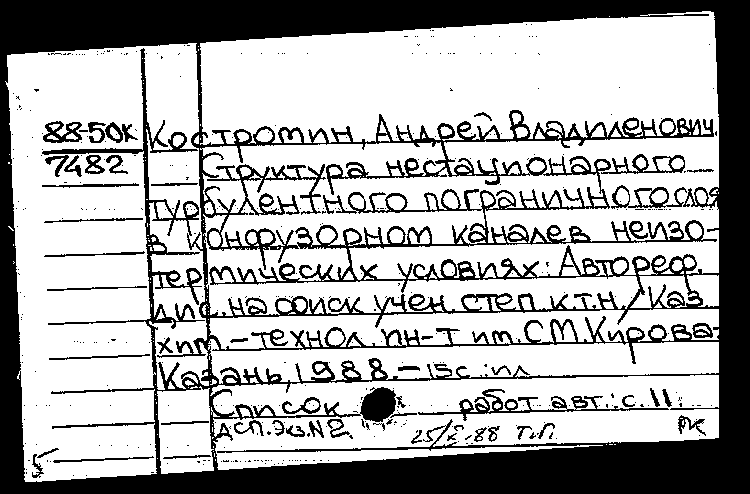 88-50К Костромин, Андрей Владиленович.
7482 Структура нестационарного
турбулентного пограничного слоя
в конфузорном канале в неизо-
термических условиях: Автореф.
дис. на соиск учен. степ. к.т.н. / Каз.
хим.-технол. ин-т им. С.М. Кирова.-
Казань, 1988.-15с.:ил
Список работ авт.: с. 11.
ДСП. Экз.N2 88 Т.П. РК
5